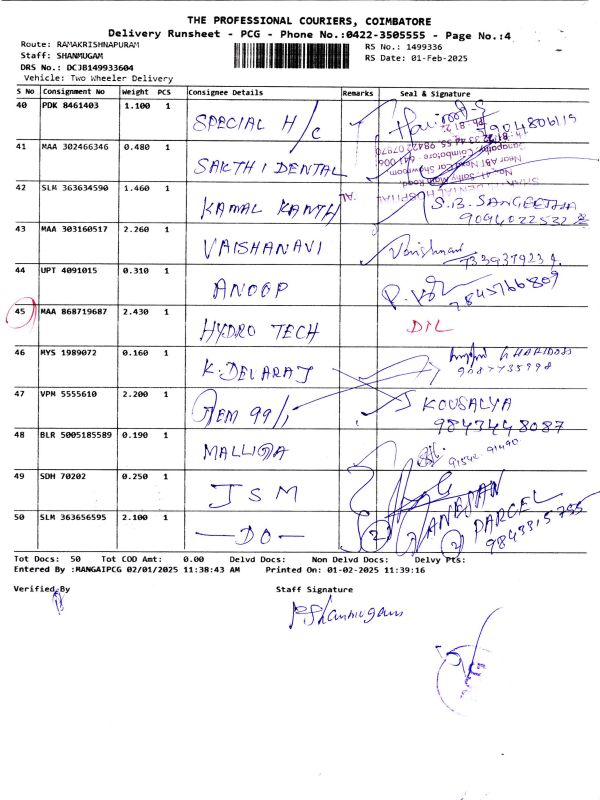 THE PROFESSIONAL COURIERS, COIMBATORE
Delivery Runsheet - PCG - Phone No.:0422-3505555 - Page No.:4
Route: RAMAKRISHNAPURAM
RS No.: 1499336
Staff: SHANMUGAM
RS Date: 01-Feb-2025
DRS No.: DCJB149933604
Vehicle: Two Wheeler Delivery
S No Consignment No Weight PCS Consignee Details Remarks Seal & Signature
40 PDK 8461403 1.100 1 SPECIAL H/C
41 MAA 302466346 0.480 1 SAKTHI DENTAL
42 SLM 363634590 1.460 1 KAMAL KANTH S.B. SANGEETHA
9094022532
43 MAA 303160517 2.260 1 VAISHANAVI Vaishnavi
44 UPT 4091015 0.310 1 ANOOP
7845766809
45 MAA 868719687 2.430 1 HYDRO TECH D/L
46 MYS 1989072 0.160 1 K. DEVARAJ
47 VPM 5555610 2.200 1 GEM 99/1 KOUSALYA
9843448087
48 BLR 5005185589 0.190 1 MALLIGA
91542 91490
49 SDH 70202 0.250 1 JSM
50 SLM 363656595 2.100 1 —DO— PARCEL
9843315755
Tot Docs: 50 Tot COD Amt: 0.00 Delvd Docs: Non Delvd Docs: Delvy Pts:
Entered By :MANGAIPCG 02/01/2025 11:38:43 AM Printed On: 01-02-2025 11:39:16
Verified By Staff Signature
P. Shanmugam